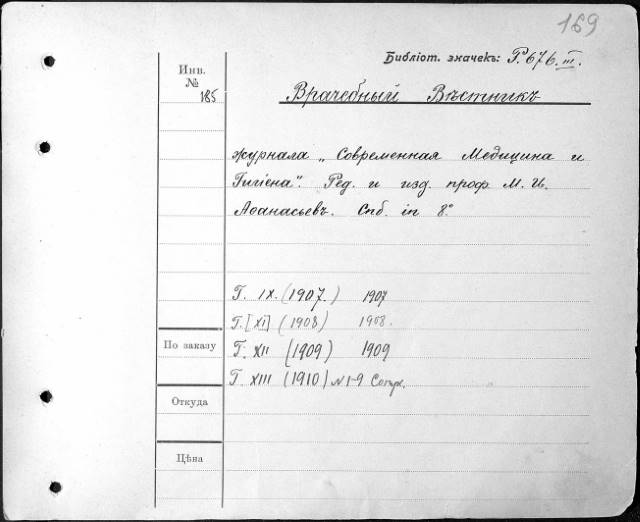 169
Библіот. значекъ: Р.676.III.
Инв.
№
185
Врачебный Вѣстникъ
журнала „Современная Медицина и
Гигіена". Ред. и изд. проф. М. И.
Аѳанасьевъ. Спб. in 8°
Г. IX. (1907.) 1907
Г. [XI] (1908) 1908.
По заказу
Г. XII (1909) 1909
Г. XIII (1910) N 1-9
Откуда
Цѣна